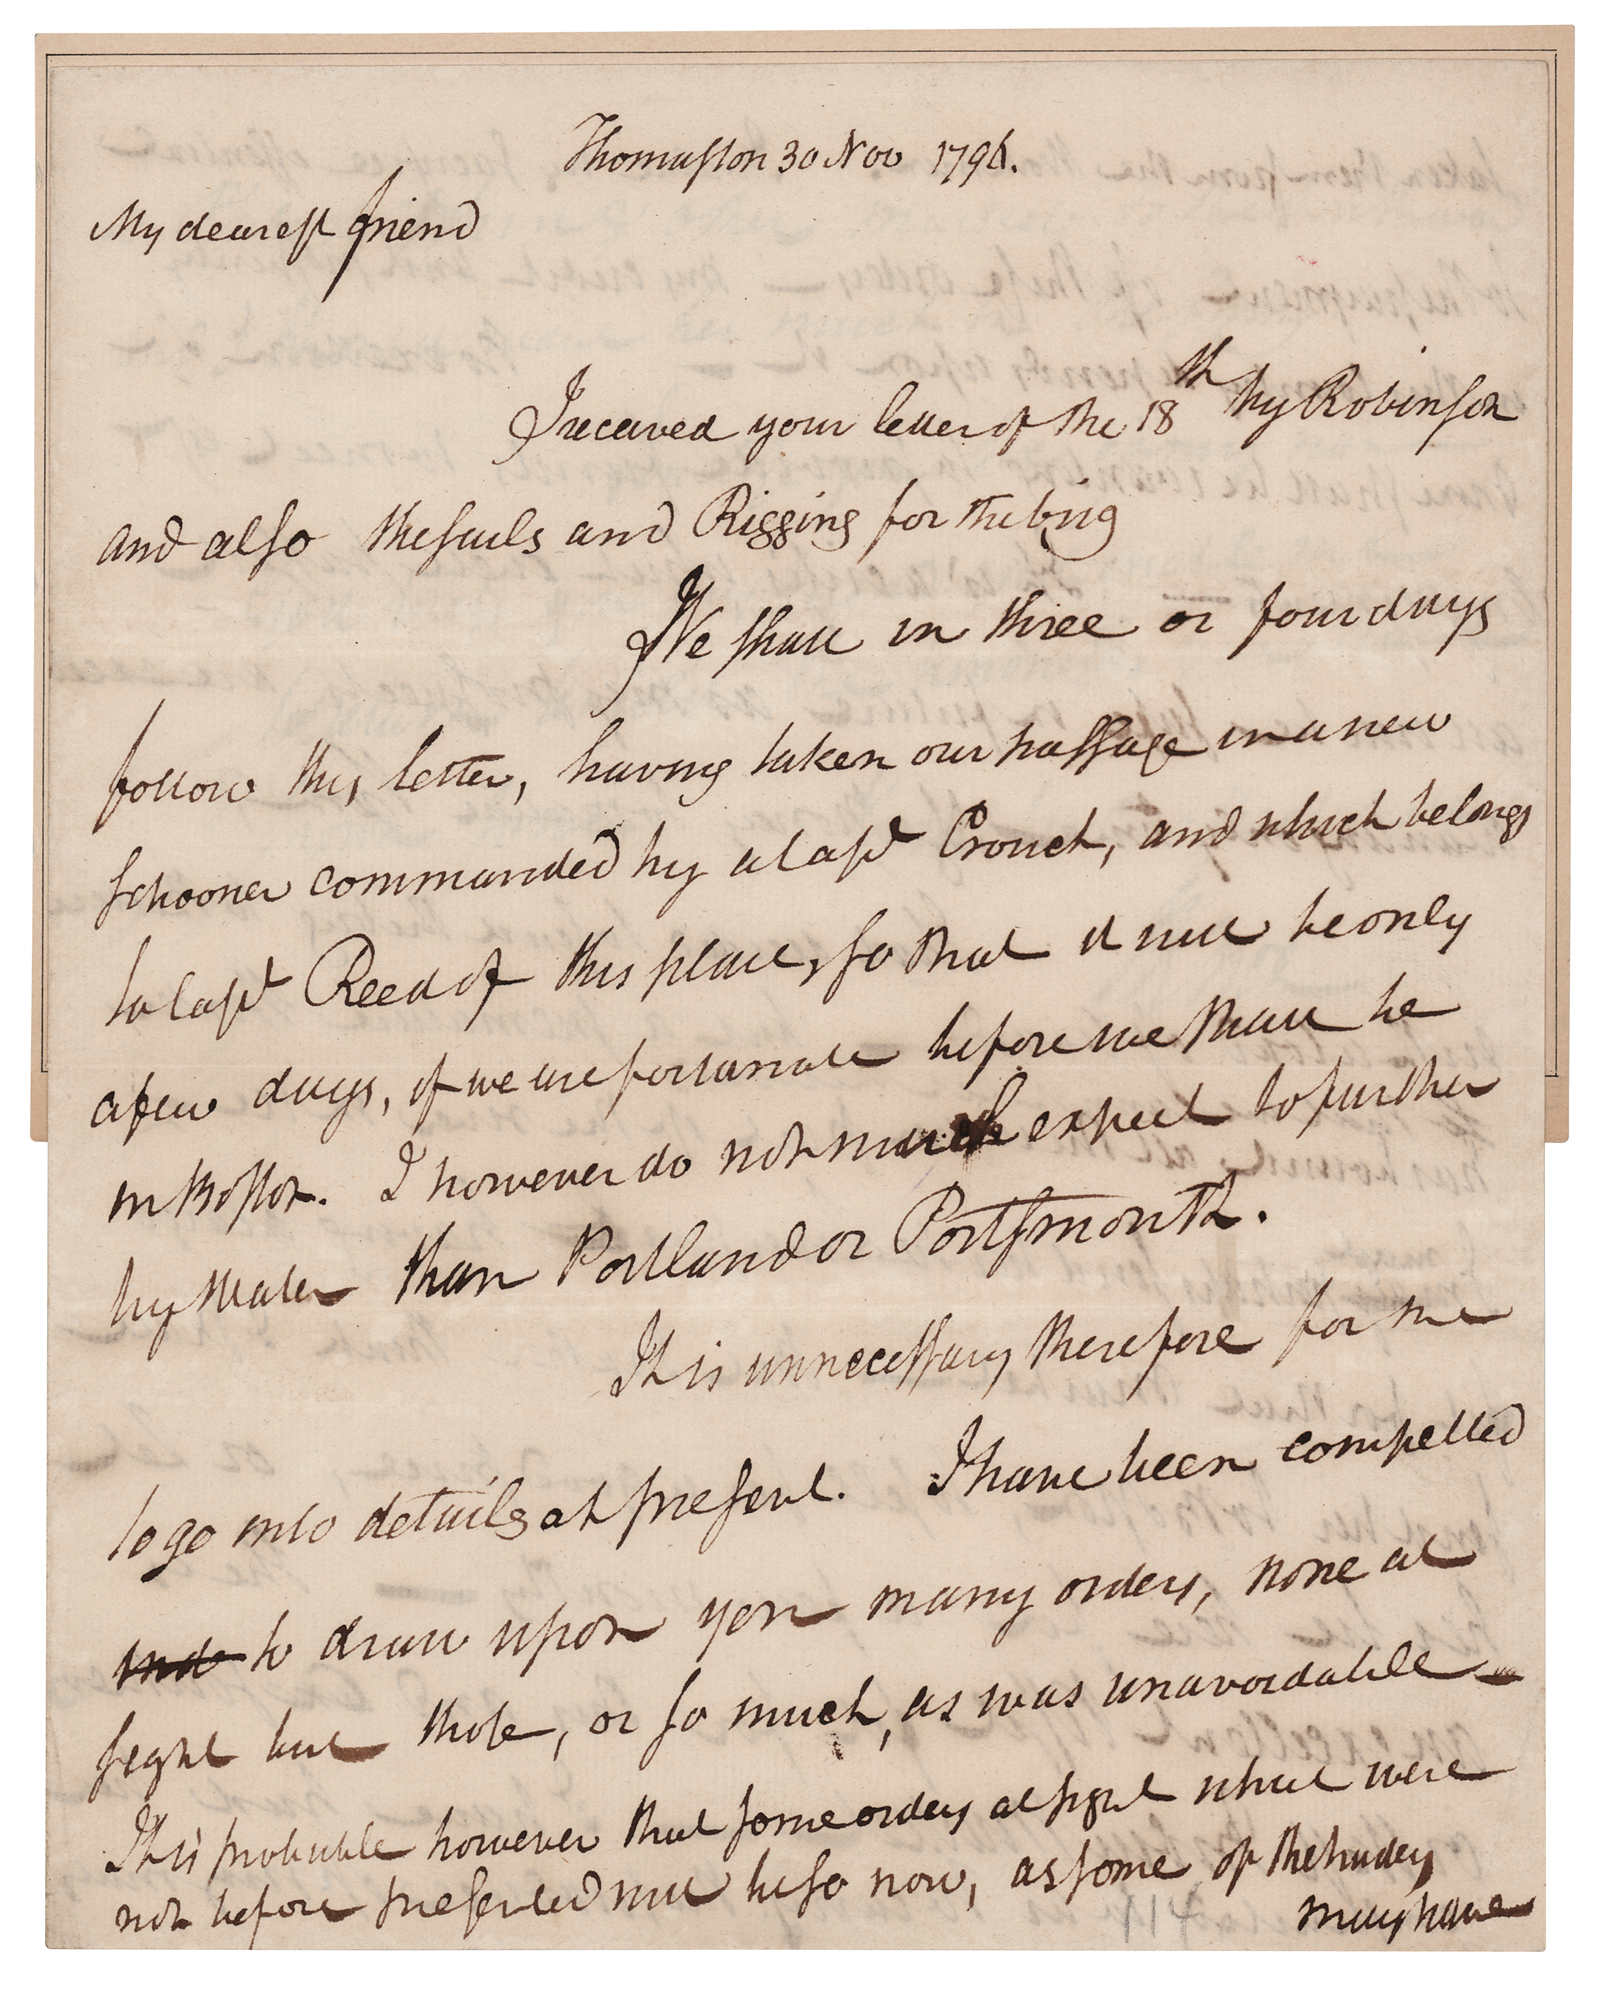 Thomaston 30 Nov 1796.
My dearest friend
I received your letter of the 18th by Robinson
and also the sails and Rigging for the brig
We shall in three or four days
follow this letter, having taken our passage in a new
schooner commanded by a Capt Crouch, and which belongs
to Capt Reed of this place, so that it will be only
a few days, if we are fortunate before we shall be
in Boston. I however do not much expect to further
by water than Portland or Portsmouth.
It is unnecessary therefore for me
to go into details at present. I have been compelled
to draw upon you many orders, none at
sight but those, or so much, as was unavoidable
It is probable however that some orders at sight which were
not before presented will be so now, as some of the
may have
114